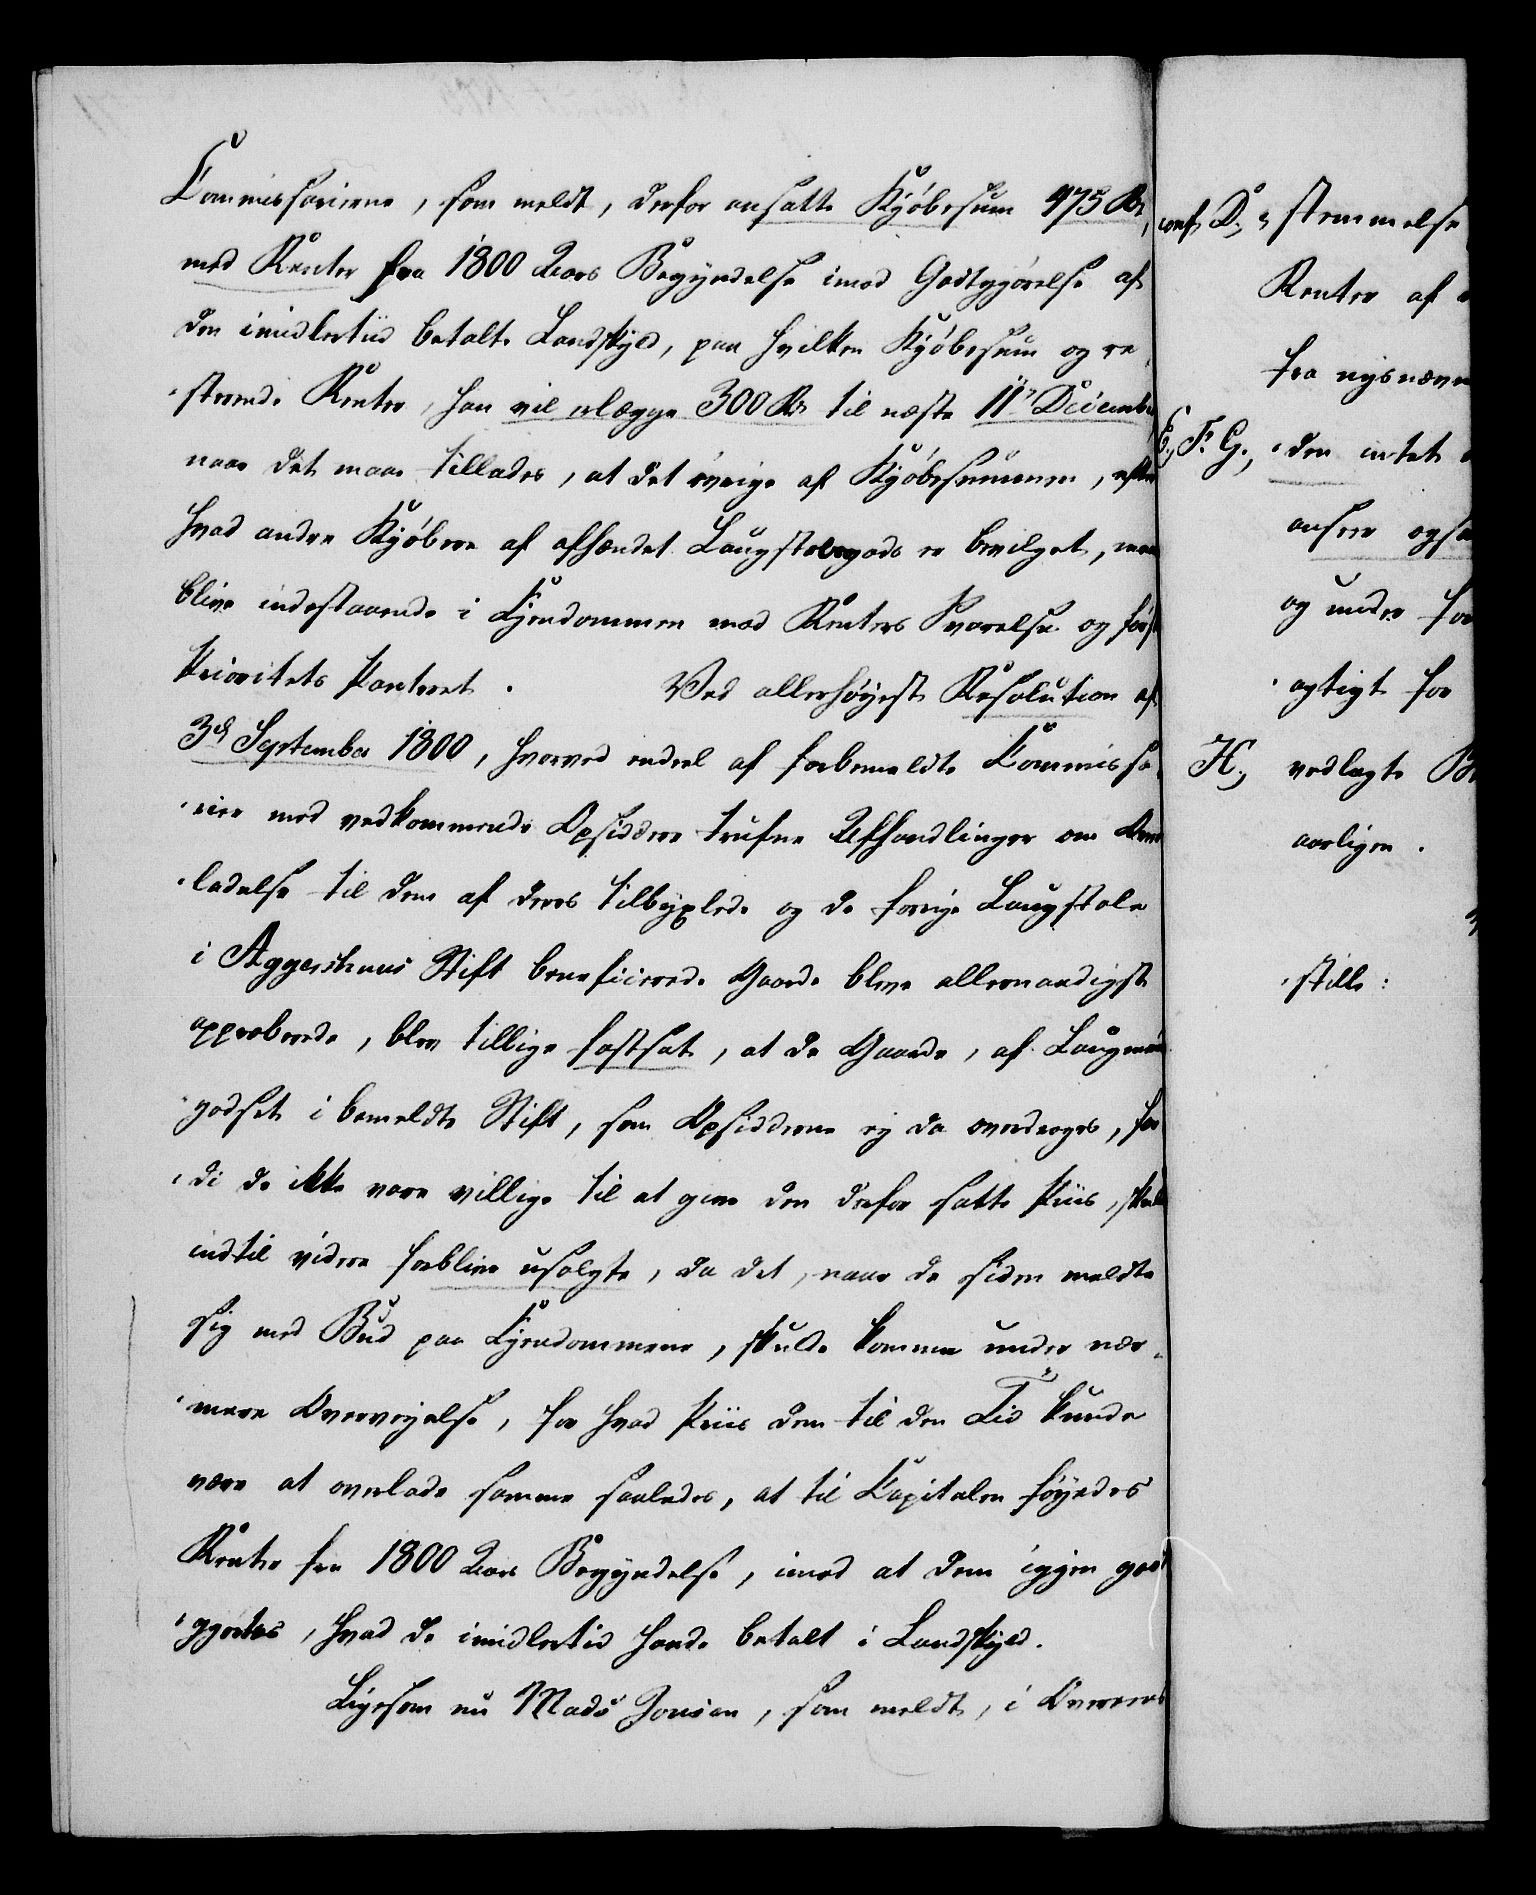 Commissairerne, som meldt, derfor ansatte Kjöbesum 475 Rd,
med Renter fra 1800 Aars Begyndelse imod Godtgjörelse af
den imidlertiid betalte Landskyld, paa hvilken Kjöbesum og re-
sterende Renter, han vil erlægge 300 Rd til næste 11te December
naar det maae tillades, at det övrige af Kjöbesummen, efter
hvad andre Kjöbere af afhændet Laugstolegods er bevilget, maae
blive indestaaende i Ejendommen mod Renters Svarelse og först
Prioritets Panteret. Ved allerhöyeste Resolution af
3de September 1800, hvorved endeel af forbemeldte Commissa-
rier med vedkommende Opsiddere trufne Afhandlinger om Over-
ladelse til dem af deres tilbyxlede og de forrige Laugstole
i Aggershuus Stift beneficerede Gaarde bleve allernaadigst
approberede, blev tillige fastsat, at de Gaarde, af Laugmands
godset i bemeldte Stift, som Opsidderne ej da overdroges, for-
di de ikke vare villige til at give den derfor satte Priis, skulde
indtil videre forblive usolgte, da det, naar de siden meldte
sig med Bud paa Ejendommene, skulde komme under nær-
mere Overvejelse, for hvad Priis dem til den Tid kunde
være at overlade samme saaledes, at til Capitalen föyedes
Renter fra 1800 Aars Begyndelse, imod at dem igjen godt-
gjortes, hvad de imidlertid havde betalt i Landskyld.
Ligesom nu Mads Jonsen, som meldt, i Overeens
conf. D; stemmelse
Renter af
fra nysnævn
E, F. G., den intet
anseer ogsaa
og under for
agtigt for
H., vedlagte
aarligen.
stille: